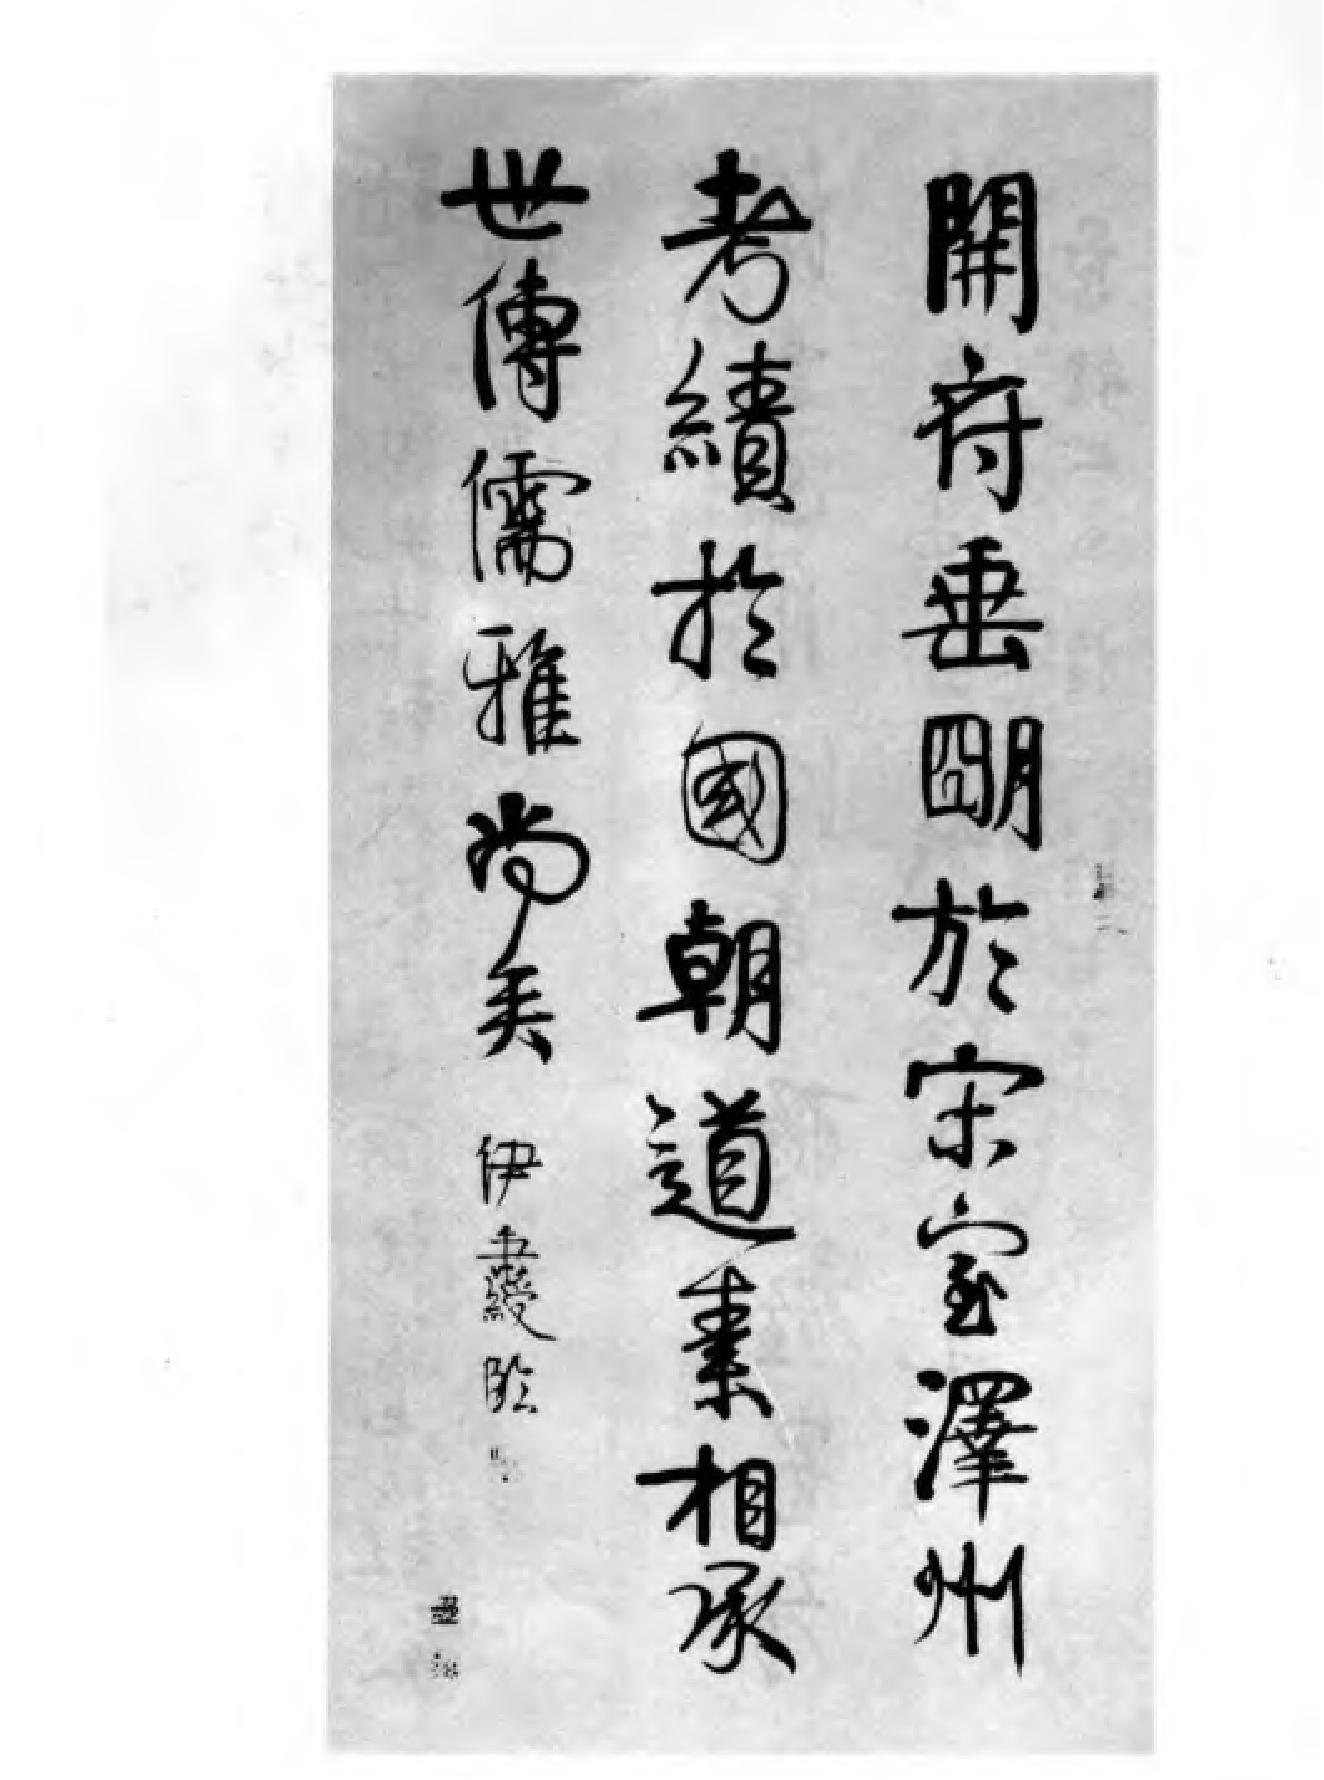 開府垂明於宋室澤州
考績於國朝道素相承
世傳儒雅尚矣
伊秉綬臨